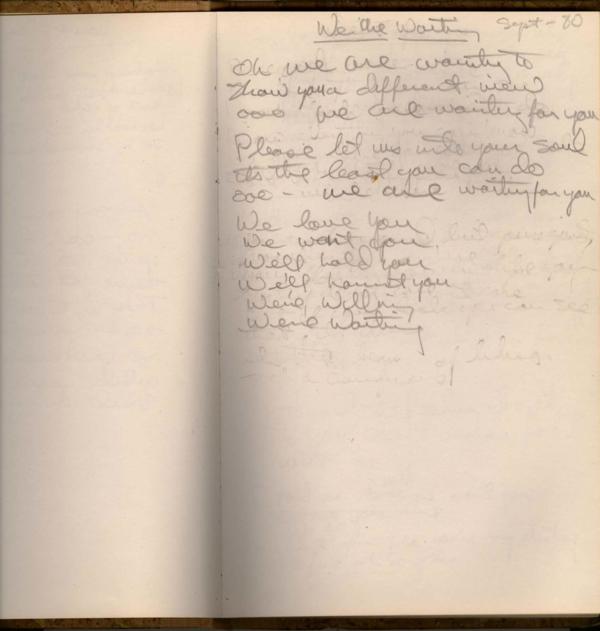 We the Waiting Sept - 80
Oh we are waiting to
show you a different view
ooo we are waiting for you
Please let us into your soul
its the least you can do
ooo - we are waiting for you
We love you
We want you
We'll hold you
We'll haunt you
We're Willing
We're Waiting